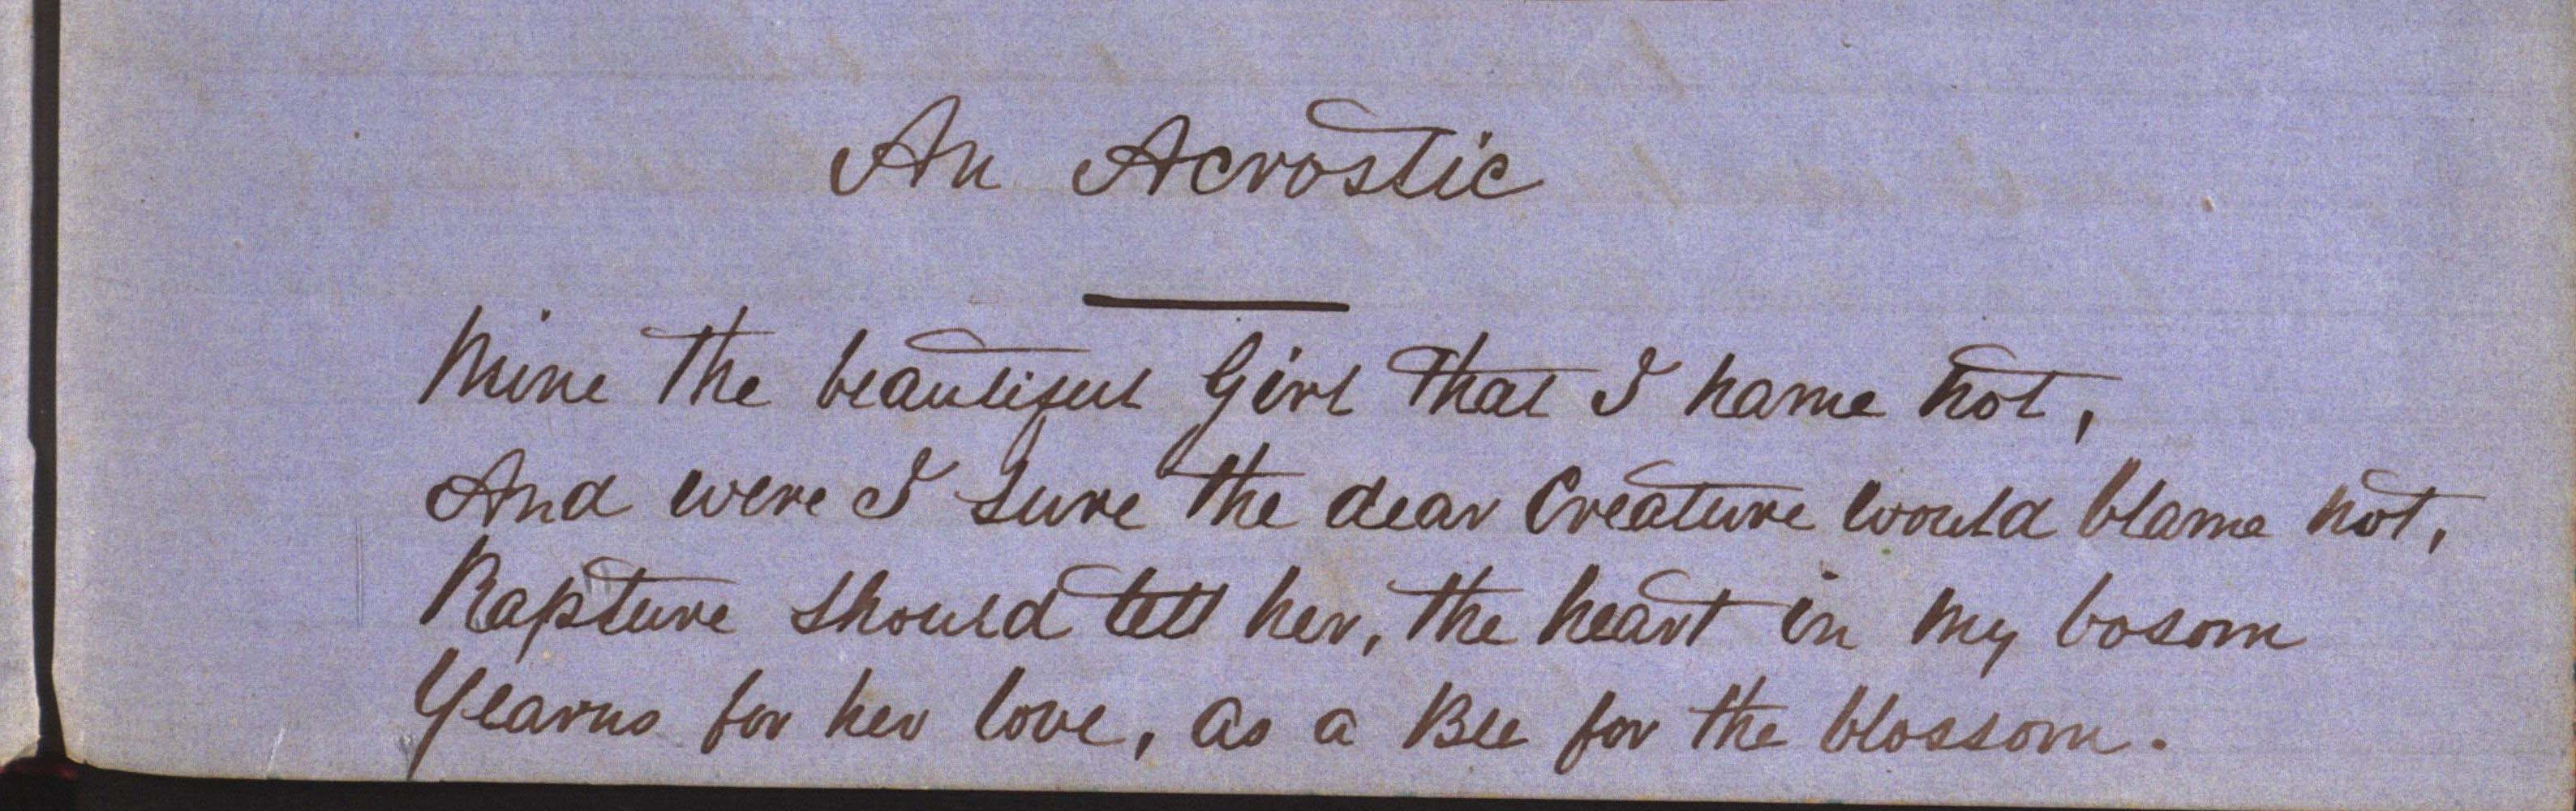 An Acrostic
Mine the beautiful Girl that I name not,
And were I sure the dear Creature would blame not,
Rapture should tell her, the heart in my bosom
Yearns for her love, as a Bee for the blossom.